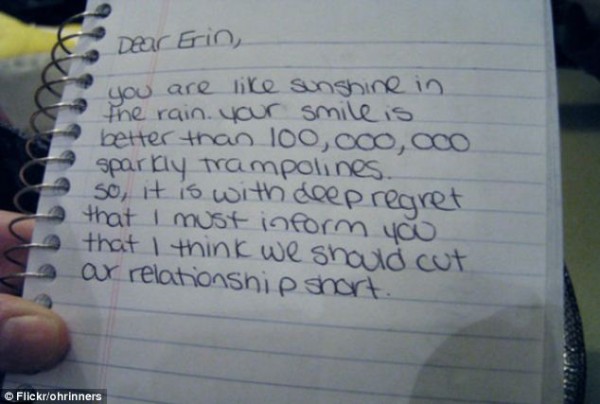 Dear Erin,
you are like sunshine in
the rain. your smile is
better than 100,000,000
sparkly trampolines.
so, it is with deep regret
that I must inform you
that I think we should cut
our relationship short.
© Flickr/ohrinners